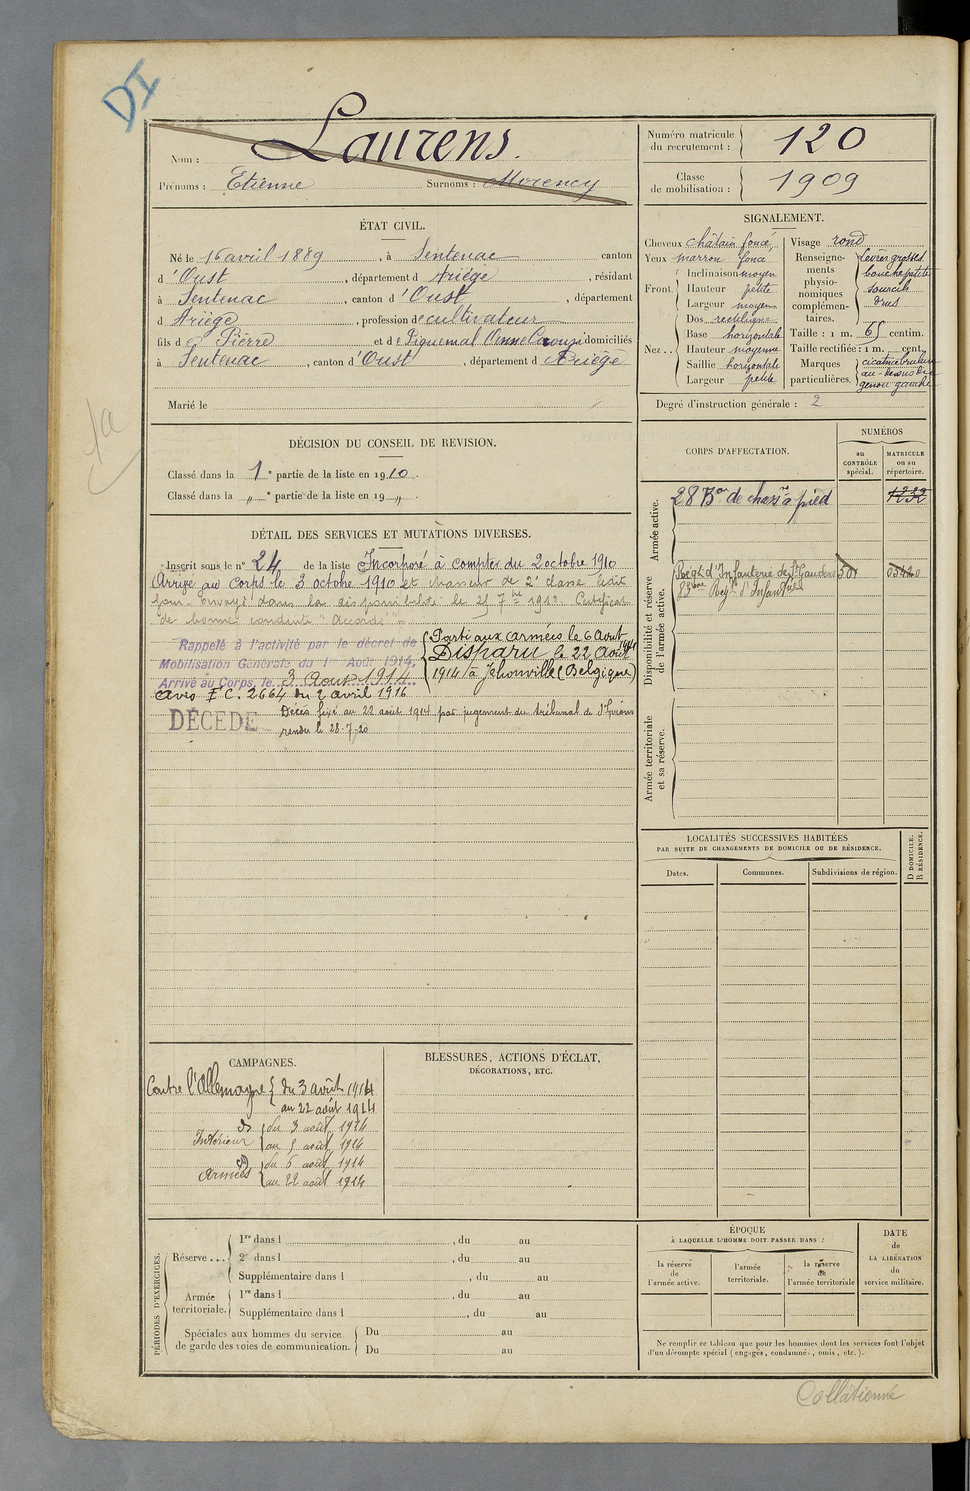 DI
Laurens.
Nom :
Prénoms : Etienne Surnoms : Morency
Numéro matricule du recrutement : 120
Classe de mobilisation : 1909
ÉTAT CIVIL.
Né le 16 avril 1889, à Sentenac canton
d'Oust, département d Ariège, résidant
à Sentenac, canton d'Oust, département
d Ariège, profession de cultivateur
fils de Pierre et de Piquemal domiciliés
à Sentenac, canton d'Oust, département d Ariège
Marié le
SIGNALEMENT.
Cheveux châtain foncé
Yeux marron foncé
Front. Inclinaison moyen
Hauteur petite
Largeur moyen
Nez.. Dos rectiligne
Base horizontale
Hauteur moyenne
Saillie horizontale
Largeur petite
Visage rond
Renseignements physionomiques complémentaires. lèvres grosses bouche petite sourcils drus
Taille : 1 m. 65 centim.
Taille rectifiée : 1 m. cent.
Marques particulières. cicatrice brulure au-dessus du genou gauche
Degré d'instruction générale : 2
DÉCISION DU CONSEIL DE REVISION.
Classé dans la 1e partie de la liste en 1910.
Classé dans la „ e partie de la liste en 19 „ .
DÉTAIL DES SERVICES ET MUTATIONS DIVERSES.
Inscrit sous le n° 24 de la liste Incorporé à compter du 2 octobre 1910
Arrivé au corps le 3 octobre 1910 et chasseur de 2e classe
envoyé dans la disponibilité le 25 7bre 1912. Certificat
de bonne conduite "Accordé"
Rappelé à l'activité par le décret de
Mobilisation Générale du 1er Août 1914,
Arrivé au Corps, le 3 Aout 1914
Parti aux armées le 6 Aout
Disparu le 22 Aout
1914 à Jehonville (Belgique)
Avis F.C. 2664 du 2 avril 1916
DÉCÉDÉ
Décès fixé au 22 août 1914 par jugement du tribunal de St Girons
rendu le 28-7-20
CORPS D'AFFECTATION.
NUMÉROS
au CONTRÔLE spécial.
MATRICULE ou au répertoire.
Armée active.
28 Bon de chassrs à pied 1232
Disponibilité et réserve de l'armée active.
Régt d'Infanterie de St Gaudens 501
83ème Régt d'Infanterie
Armée territoriale et sa réserve.
LOCALITÉS SUCCESSIVES HABITÉES
PAR SUITE DE CHANGEMENTS DE DOMICILE OU DE RÉSIDENCE.
Dates.
Communes.
Subdivisions de région.
D DOMICILE. R RÉSIDENCE.
CAMPAGNES.
Contre l'Allemagne du 3 août 1914
au 22 août 1914
Intérieur du 3 août 1914
au 5 août 1914
Armées du 6 août 1914
au 22 août 1914
BLESSURES, ACTIONS D'ÉCLAT,
DÉCORATIONS, ETC.
PÉRIODES D'EXERCICES.
Réserve ... 1re dans l , du au
2e dans l , du au
Supplémentaire dans l , du au
Armée territoriale. 1re dans l , du au
Supplémentaire dans l , du au
Spéciales aux hommes du service de garde des voies de communication. Du au
Du au
ÉPOQUE
À LAQUELLE L'HOMME DOIT PASSER DANS :
la réserve de l'armée active.
l'armée territoriale.
la réserve de l'armée territoriale
DATE de LA LIBÉRATION du service militaire.
Ne remplir ce tableau que pour les hommes dont les services font l'objet
d'un décompte spécial (engagés, condamnés, omis, etc.).
Collationné